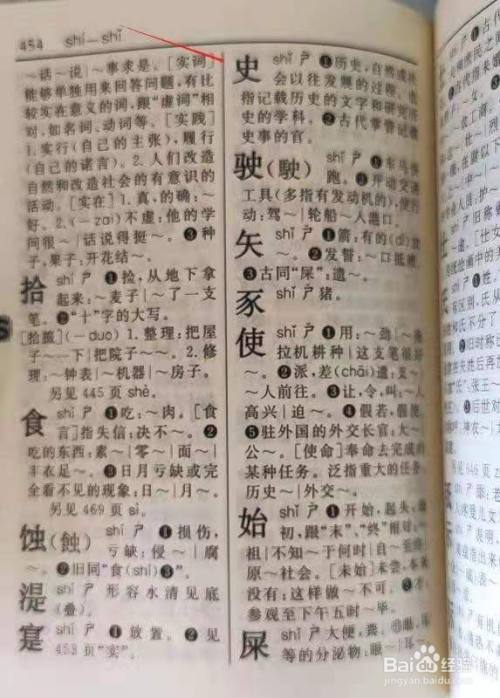 454 shí—shǐ
～话～说｜～事求是。[实词]
能够单独用来回答问题，有比
较实在意义的词，跟“虚词”相
对，如名词、动词等。[实践]
1.实行(自己的主张)，履行
(自己的诺言)。2.人们改造
自然和改造社会的有意识的
活动。[实在] 1.真，的确：～
好。2.(－zai)不虚：他的学
问很～｜话说得挺～。❸种
子，果子：开花结～。
拾 shí ㄕˊ ❶捡，从地下拿
起来：～麦子｜～了一支
笔。❷“十”字的大写。
[拾掇](－duo) 1.整理：把屋
子～一下｜把院子～～。2.修
理：～钟表｜～机器｜～房子。
另见445页 shè。
食 shí ㄕˊ ❶吃：～肉。[食
言]指失信：决不～。❷
吃的东西：素～｜零～｜面～｜
丰衣足～。❸日月亏缺或完
全看不见的现象：日～｜月～。
另见469页 sì。
蚀(蝕) shí ㄕˊ ❶损伤，
亏缺：侵～｜腐
～。❷旧同“食(shí)❸”。
湜 shí ㄕˊ 形容水清见底
(叠)。
寔 shí ㄕˊ ❶放置。❷见
453页“实”。
史 shǐ ㄕˇ ❶历史，自然或社
会以往发展的过程，也
指记载历史的文字和研究历
史的学科。❷古代掌管记载
史事的官。
驶(駛) shǐ ㄕˇ ❶车马快
跑。❷开动交通
工具(多指有发动机的)，使行
动：驾～｜轮船～入港口。
矢 shǐ ㄕˇ ❶箭：有的(dì)放
～。❷发誓：～口抵赖。
❸古同“屎”：遗～。
豕 shǐ ㄕˇ 猪。
使 shǐ ㄕˇ ❶用：～劲｜～
拉机耕种｜这支笔很好
～。❷派，差(chāi)遣：支～｜
～人前往。❸让，令，叫：～
高兴｜迫～。❹假若：假～。
❺驻外国的外交长官：大～｜
公～。[使命]奉命去完成的
某种任务。泛指重大的任务：
历史～｜外交～。
始 shǐ ㄕˇ ❶开始，起头，最
初，跟“末”、“终”相对：～
祖｜不知～于何时｜自～至终｜
原～社会。[未始]未尝，本来
没有：这样做～不可。❷才：
参观至下午五时～毕。
屎 shǐ ㄕˇ 大便，粪。㉠眼、耳
等的分泌物：眼～｜耳～。
Baidu 经验
jingyan.baidu.com